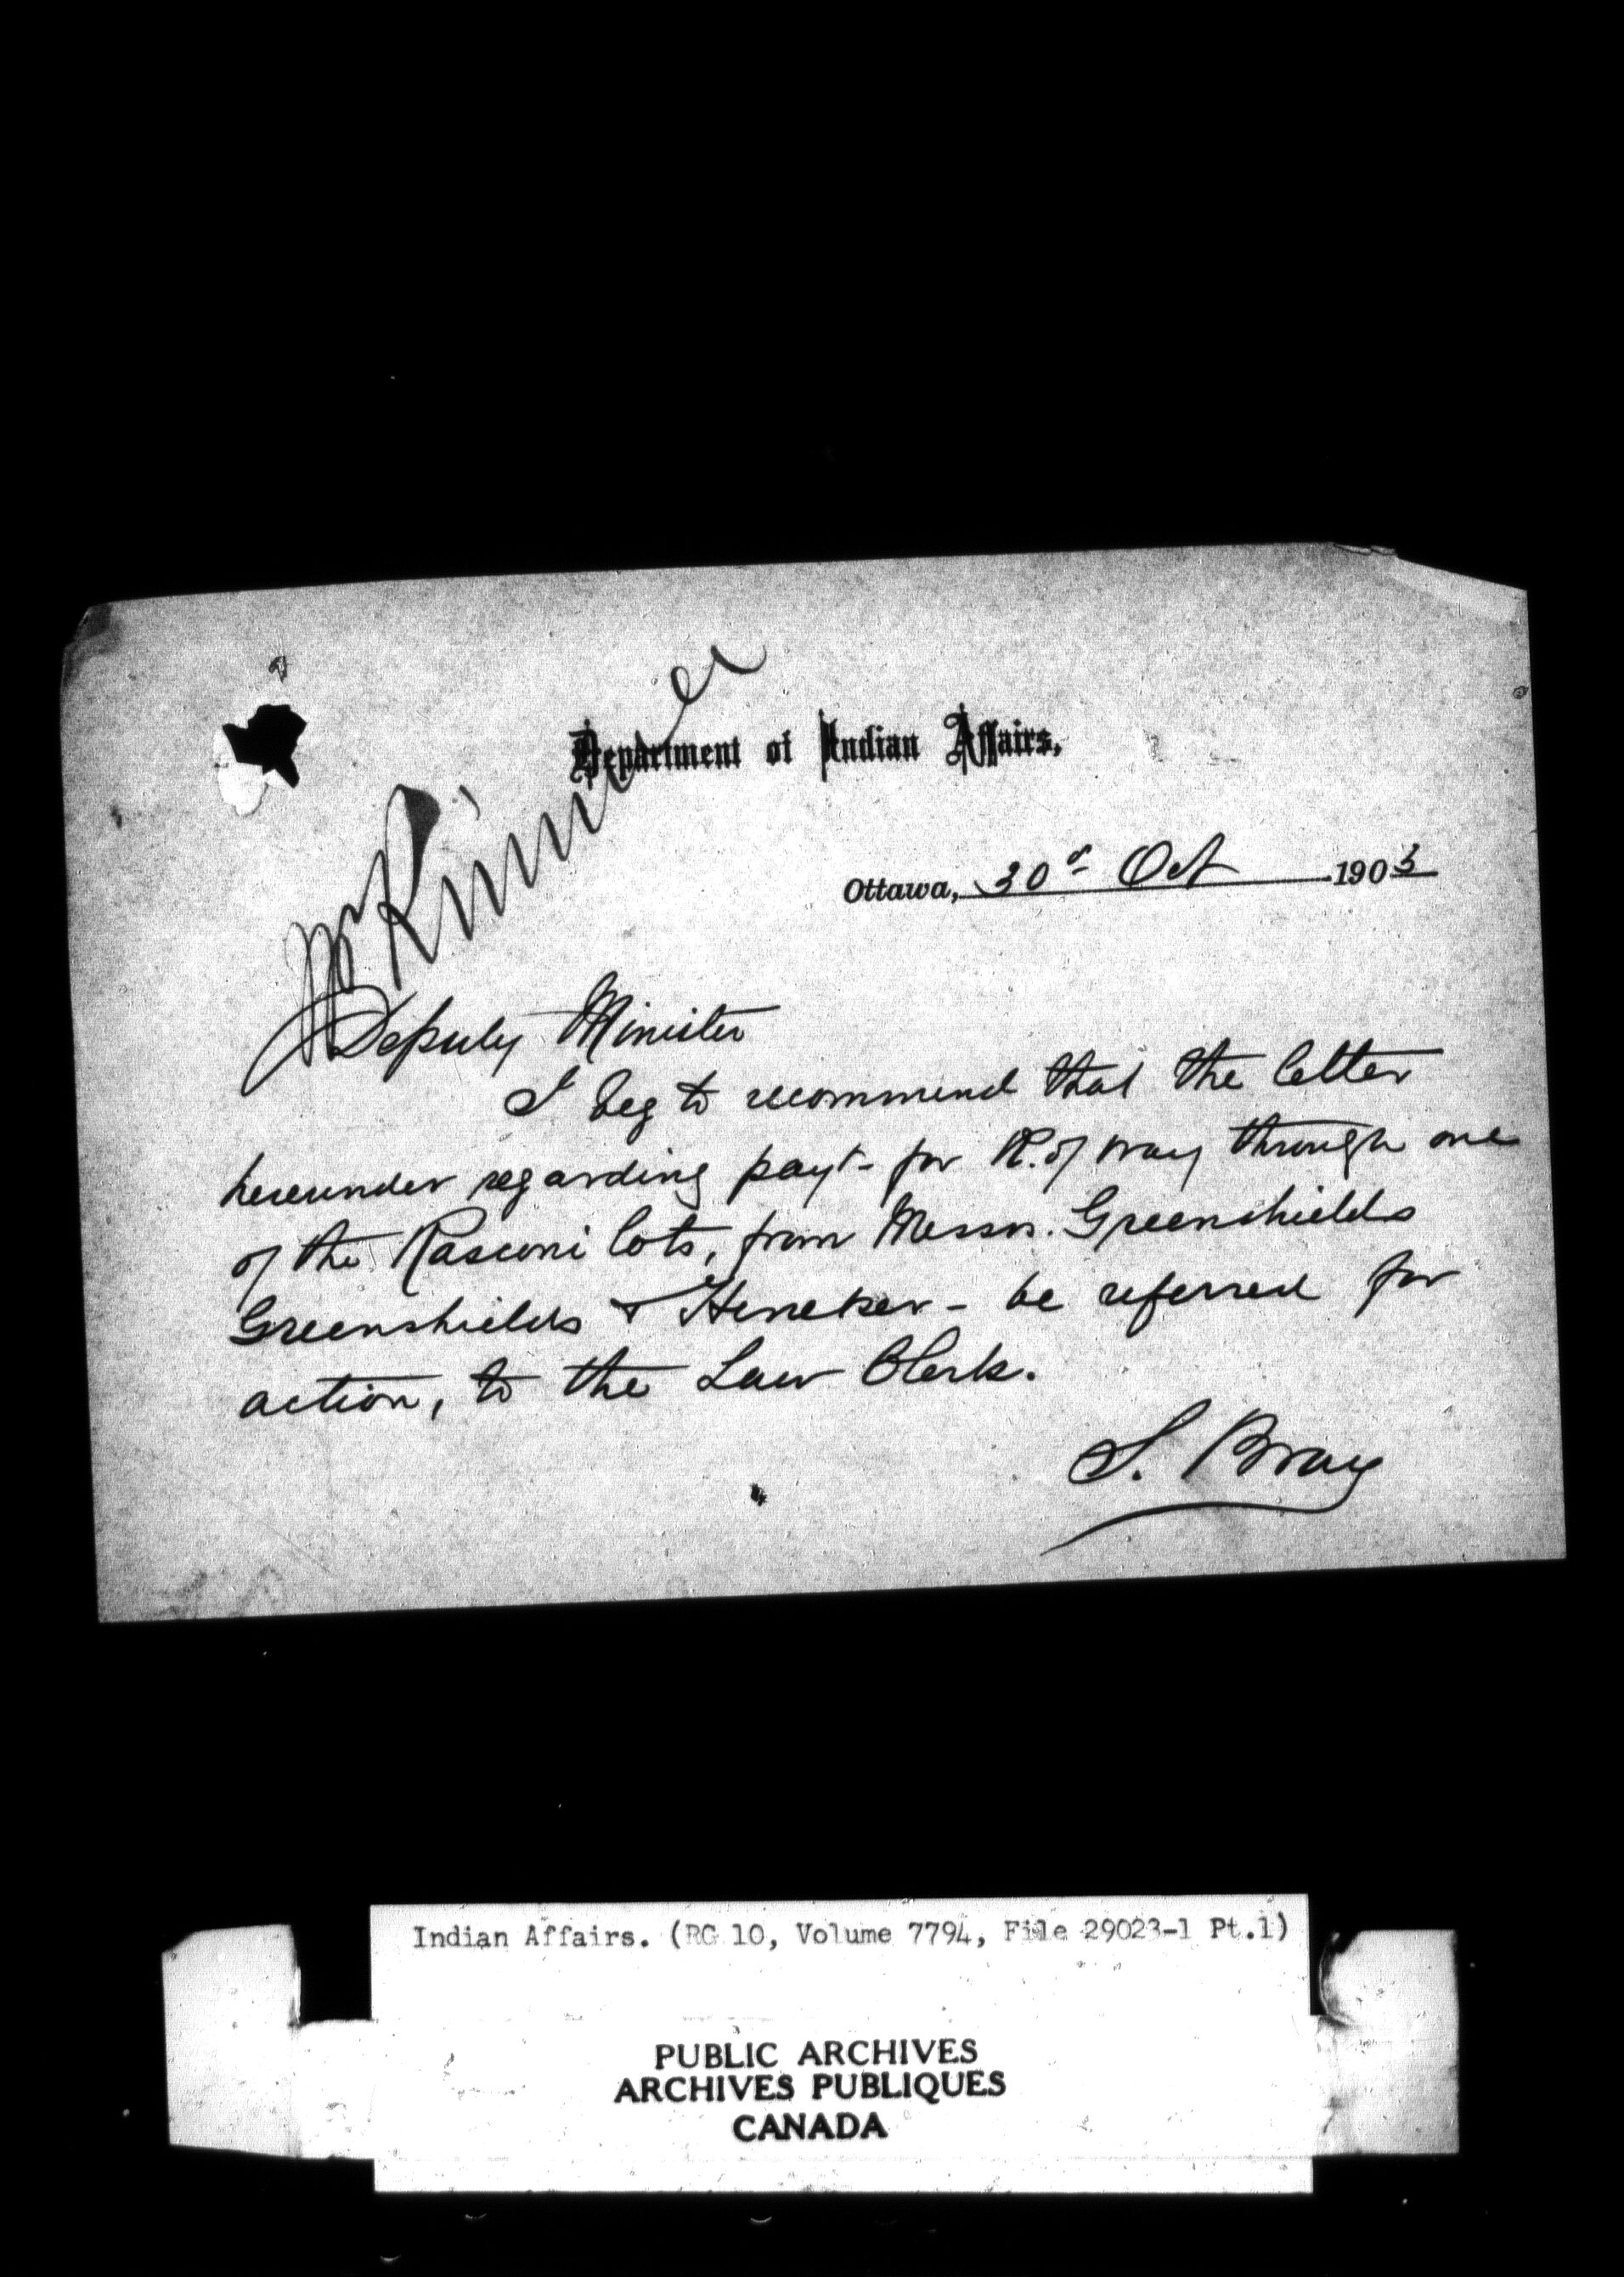 Department of Indian Affairs,
Mr Rimmer
Ottawa, 30th Oct 1903
Deputy Minister
I beg to recommend that the letter
hereunder regarding payt- for R. of way through one
of the Rasconi lots, from Messrs. Greenshields
Greenshields & Heneker - be referred for
action, to the Law Clerk.
S. Bray
Indian Affairs. (RG 10, Volume 7794, File 29023-1 Pt.1)
PUBLIC ARCHIVES
ARCHIVES PUBLIQUES
CANADA